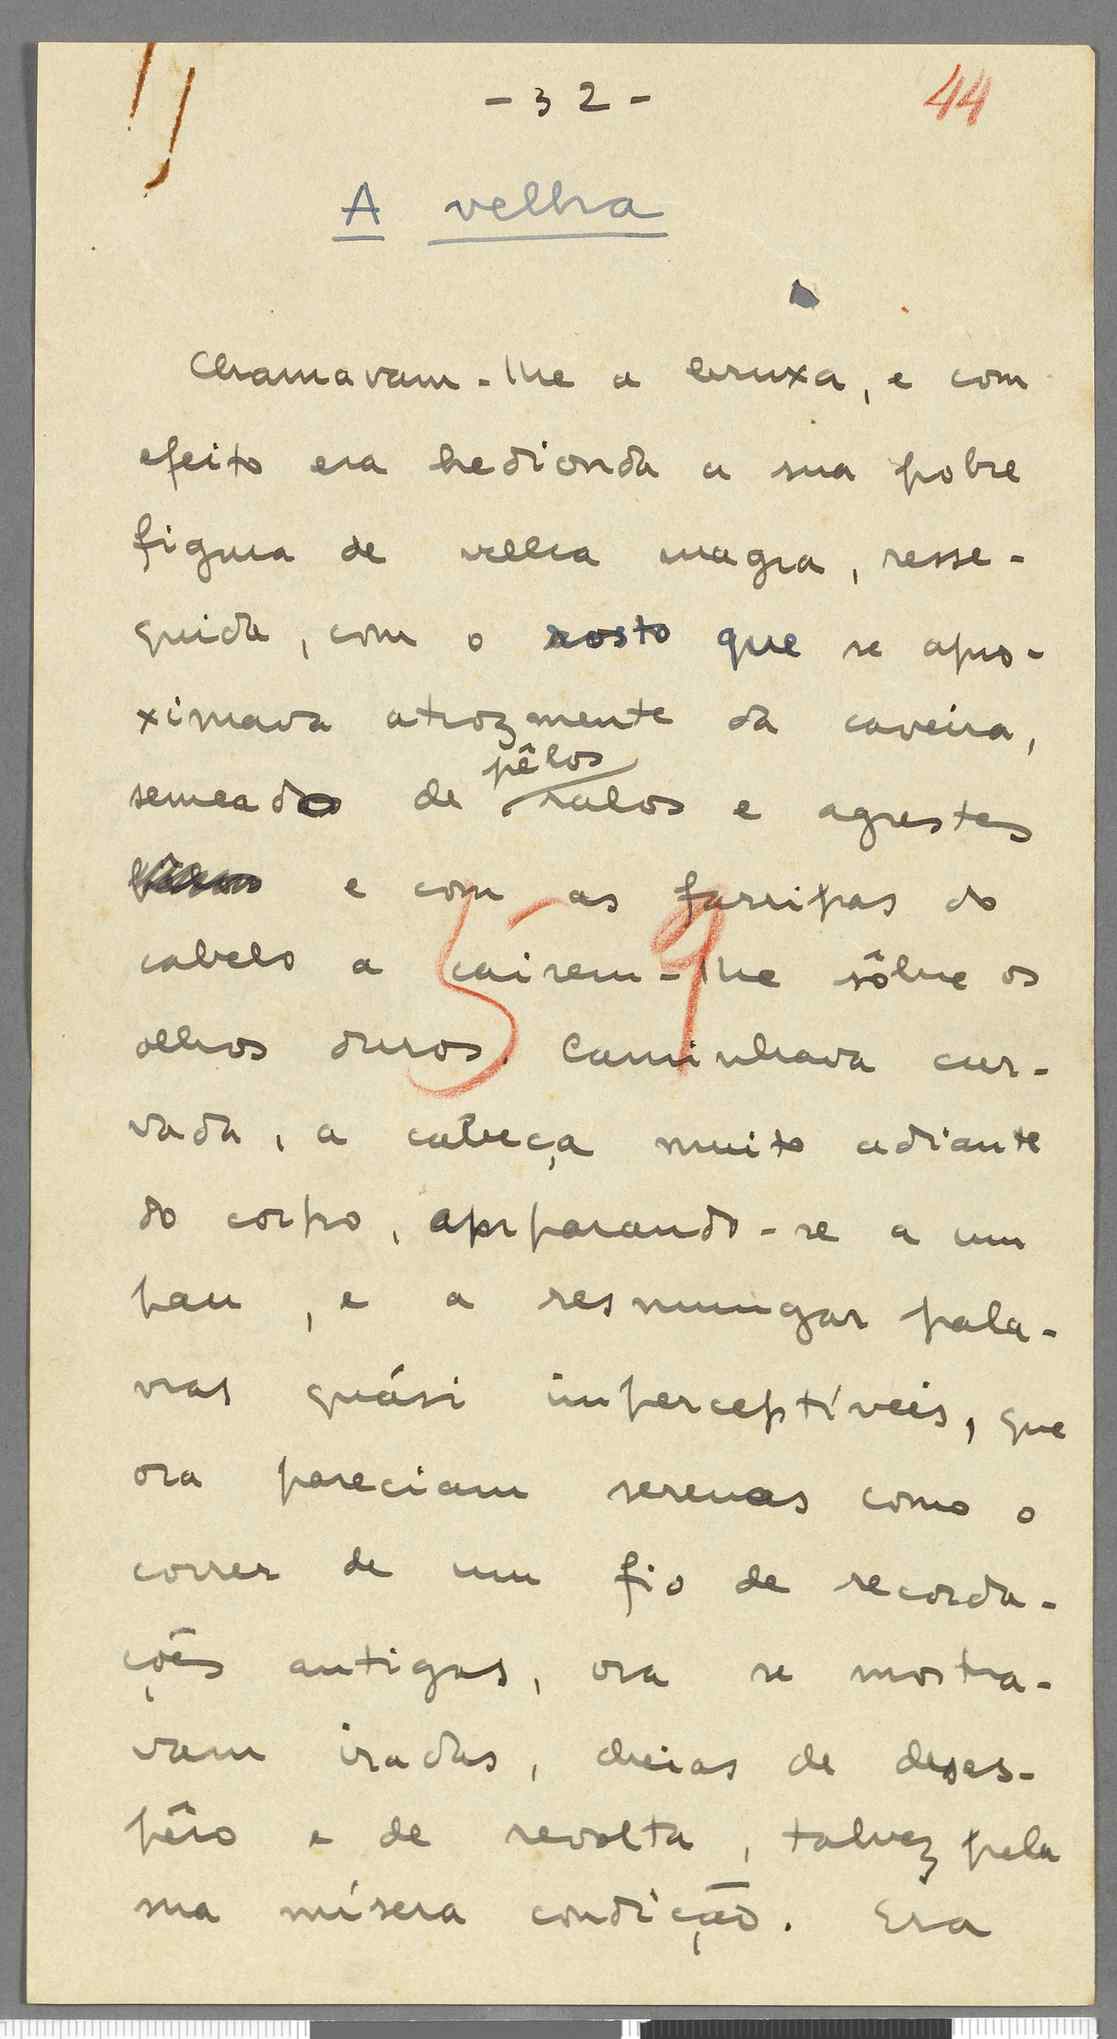 - 32 -
44
A velha
Chamavam-lhe a bruxa, e com
efeito era hedionda a sua pobre
figura de velha magra, resse-
quida, com o rosto que se apro-
ximava atrozmente da caveira,
pêlos
semeado de ralos e agrestes
e com as farripas do
cabelo a cairem-lhe sôbre os
59
olhos duros. Caminhava cur-
vada, a cabeça muito adiante
do corpo, amparando-se a um
pau, e a resmungar pala-
vras quási imperceptíveis, que
ora pareciam serenas como o
correr de um fio de recorda-
ções antigas, ora se mostra-
vam iradas, cheias de deses-
pêro e de revolta, talvez pela
sua mísera condição. Era